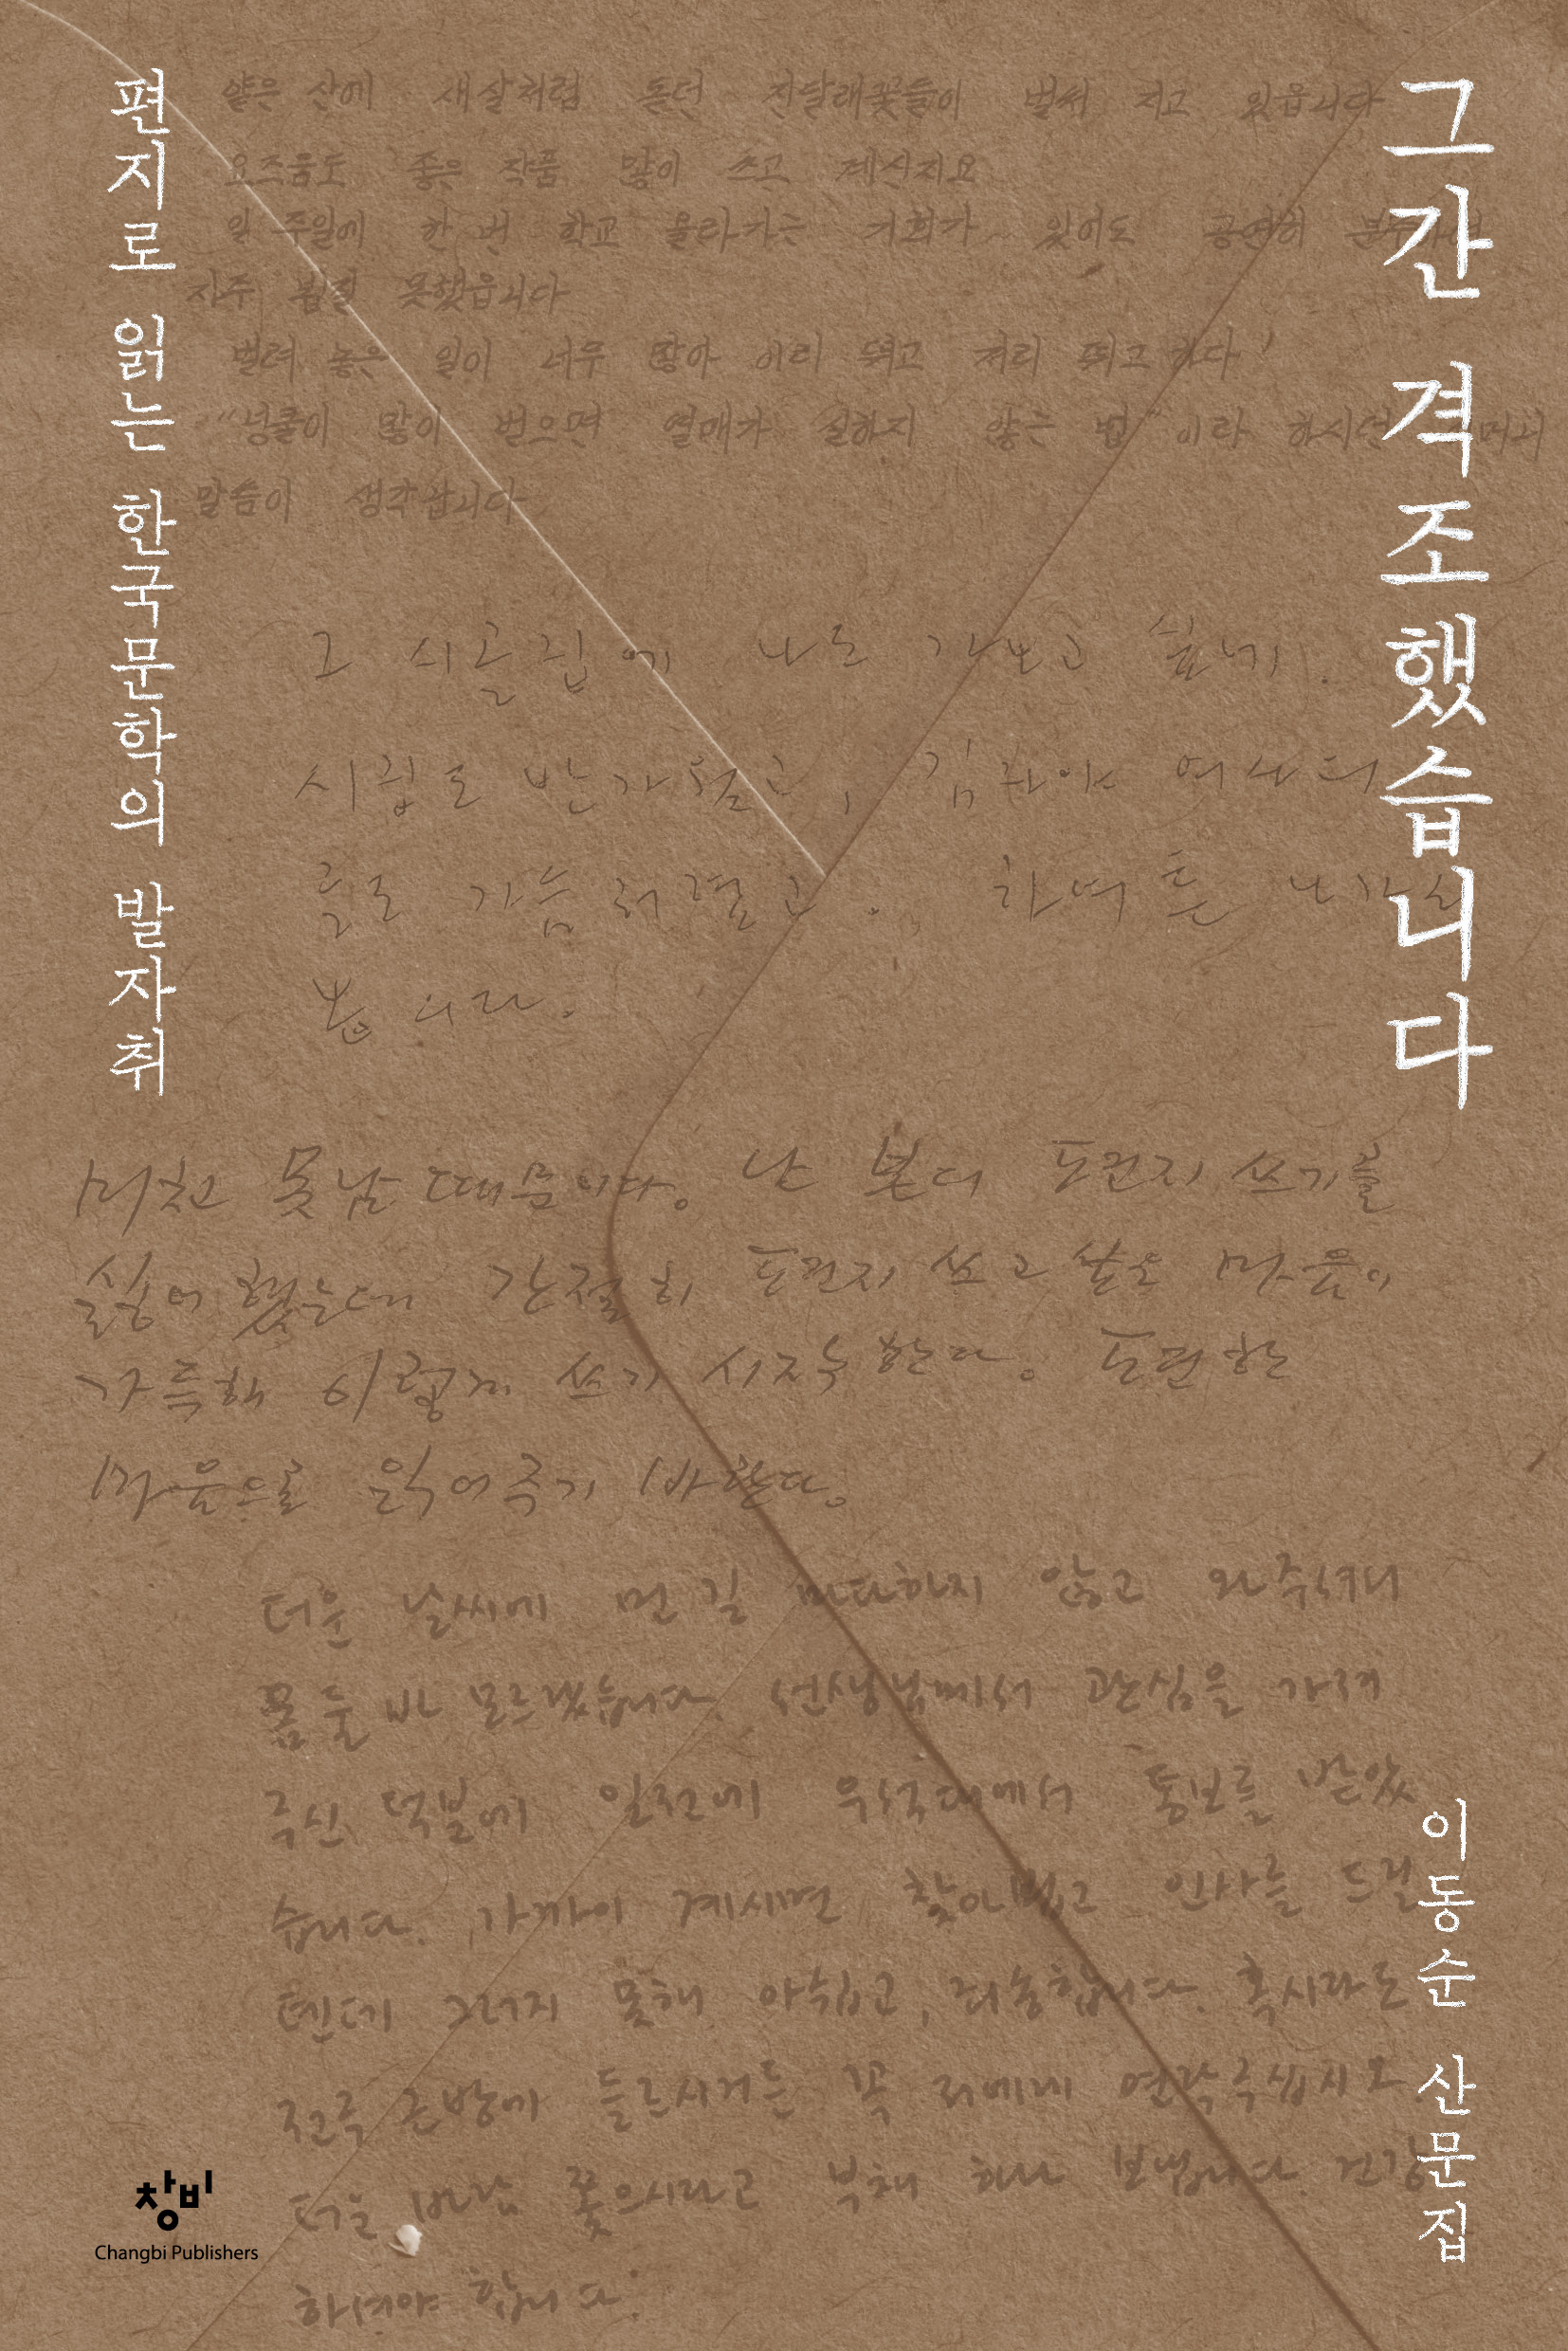 그간 격조했습니다
편지로 읽는 한국문학의 발자취
얕은 산에 새살처럼 돋던 진달래꽃들이 벌써 지고 있읍니다
요즈음도 좋은 작품 많이 쓰고 계신지요
일주일에 한 번 학교 올라가는 기회가 있어도 공연히
자주 뵙질 못했읍니다
벌려 놓은 일이 너무 많아 이리 뛰고 저리 뛰고 하다
"넝쿨이 많이 벋으며 열매가 실하지 않는 법" 이라 하시던
말씀이 생각납니다
그 시골집에 나도 가보고 싶네.
시집도 반가웠고, 김자야 여사의
글도 가슴 저렸고. 하여튼
봅니다.
미치고 못남 때문이다. 난 본디 편지 쓰기를
싫어 했는데 간절히 편지 쓰고 싶은 마음이
가득해 이렇게 쓰기 시작한다. 편한
마음으로 읽어주기 바란다.
더운 날씨에 먼 길 마다하지 않고 와주셔서
몸 둘 바 모르겠습니다. 선생님께서 관심을 가져
주신 덕분에 일전에 우석대에서 통보를 받았
습니다. 가까이 계시면 찾아뵙고 인사를 드릴
텐데 그러지 못해 아쉽고, 죄송합니다. 혹시라도
전주 근방에 들르시거든 꼭 저에게 연락주십시오.
더운 바람 쫓으시라고 부채 하나 보냅니다. 건강
하셔야 합니다.
이동순 산문집
창비
Changbi Publishers